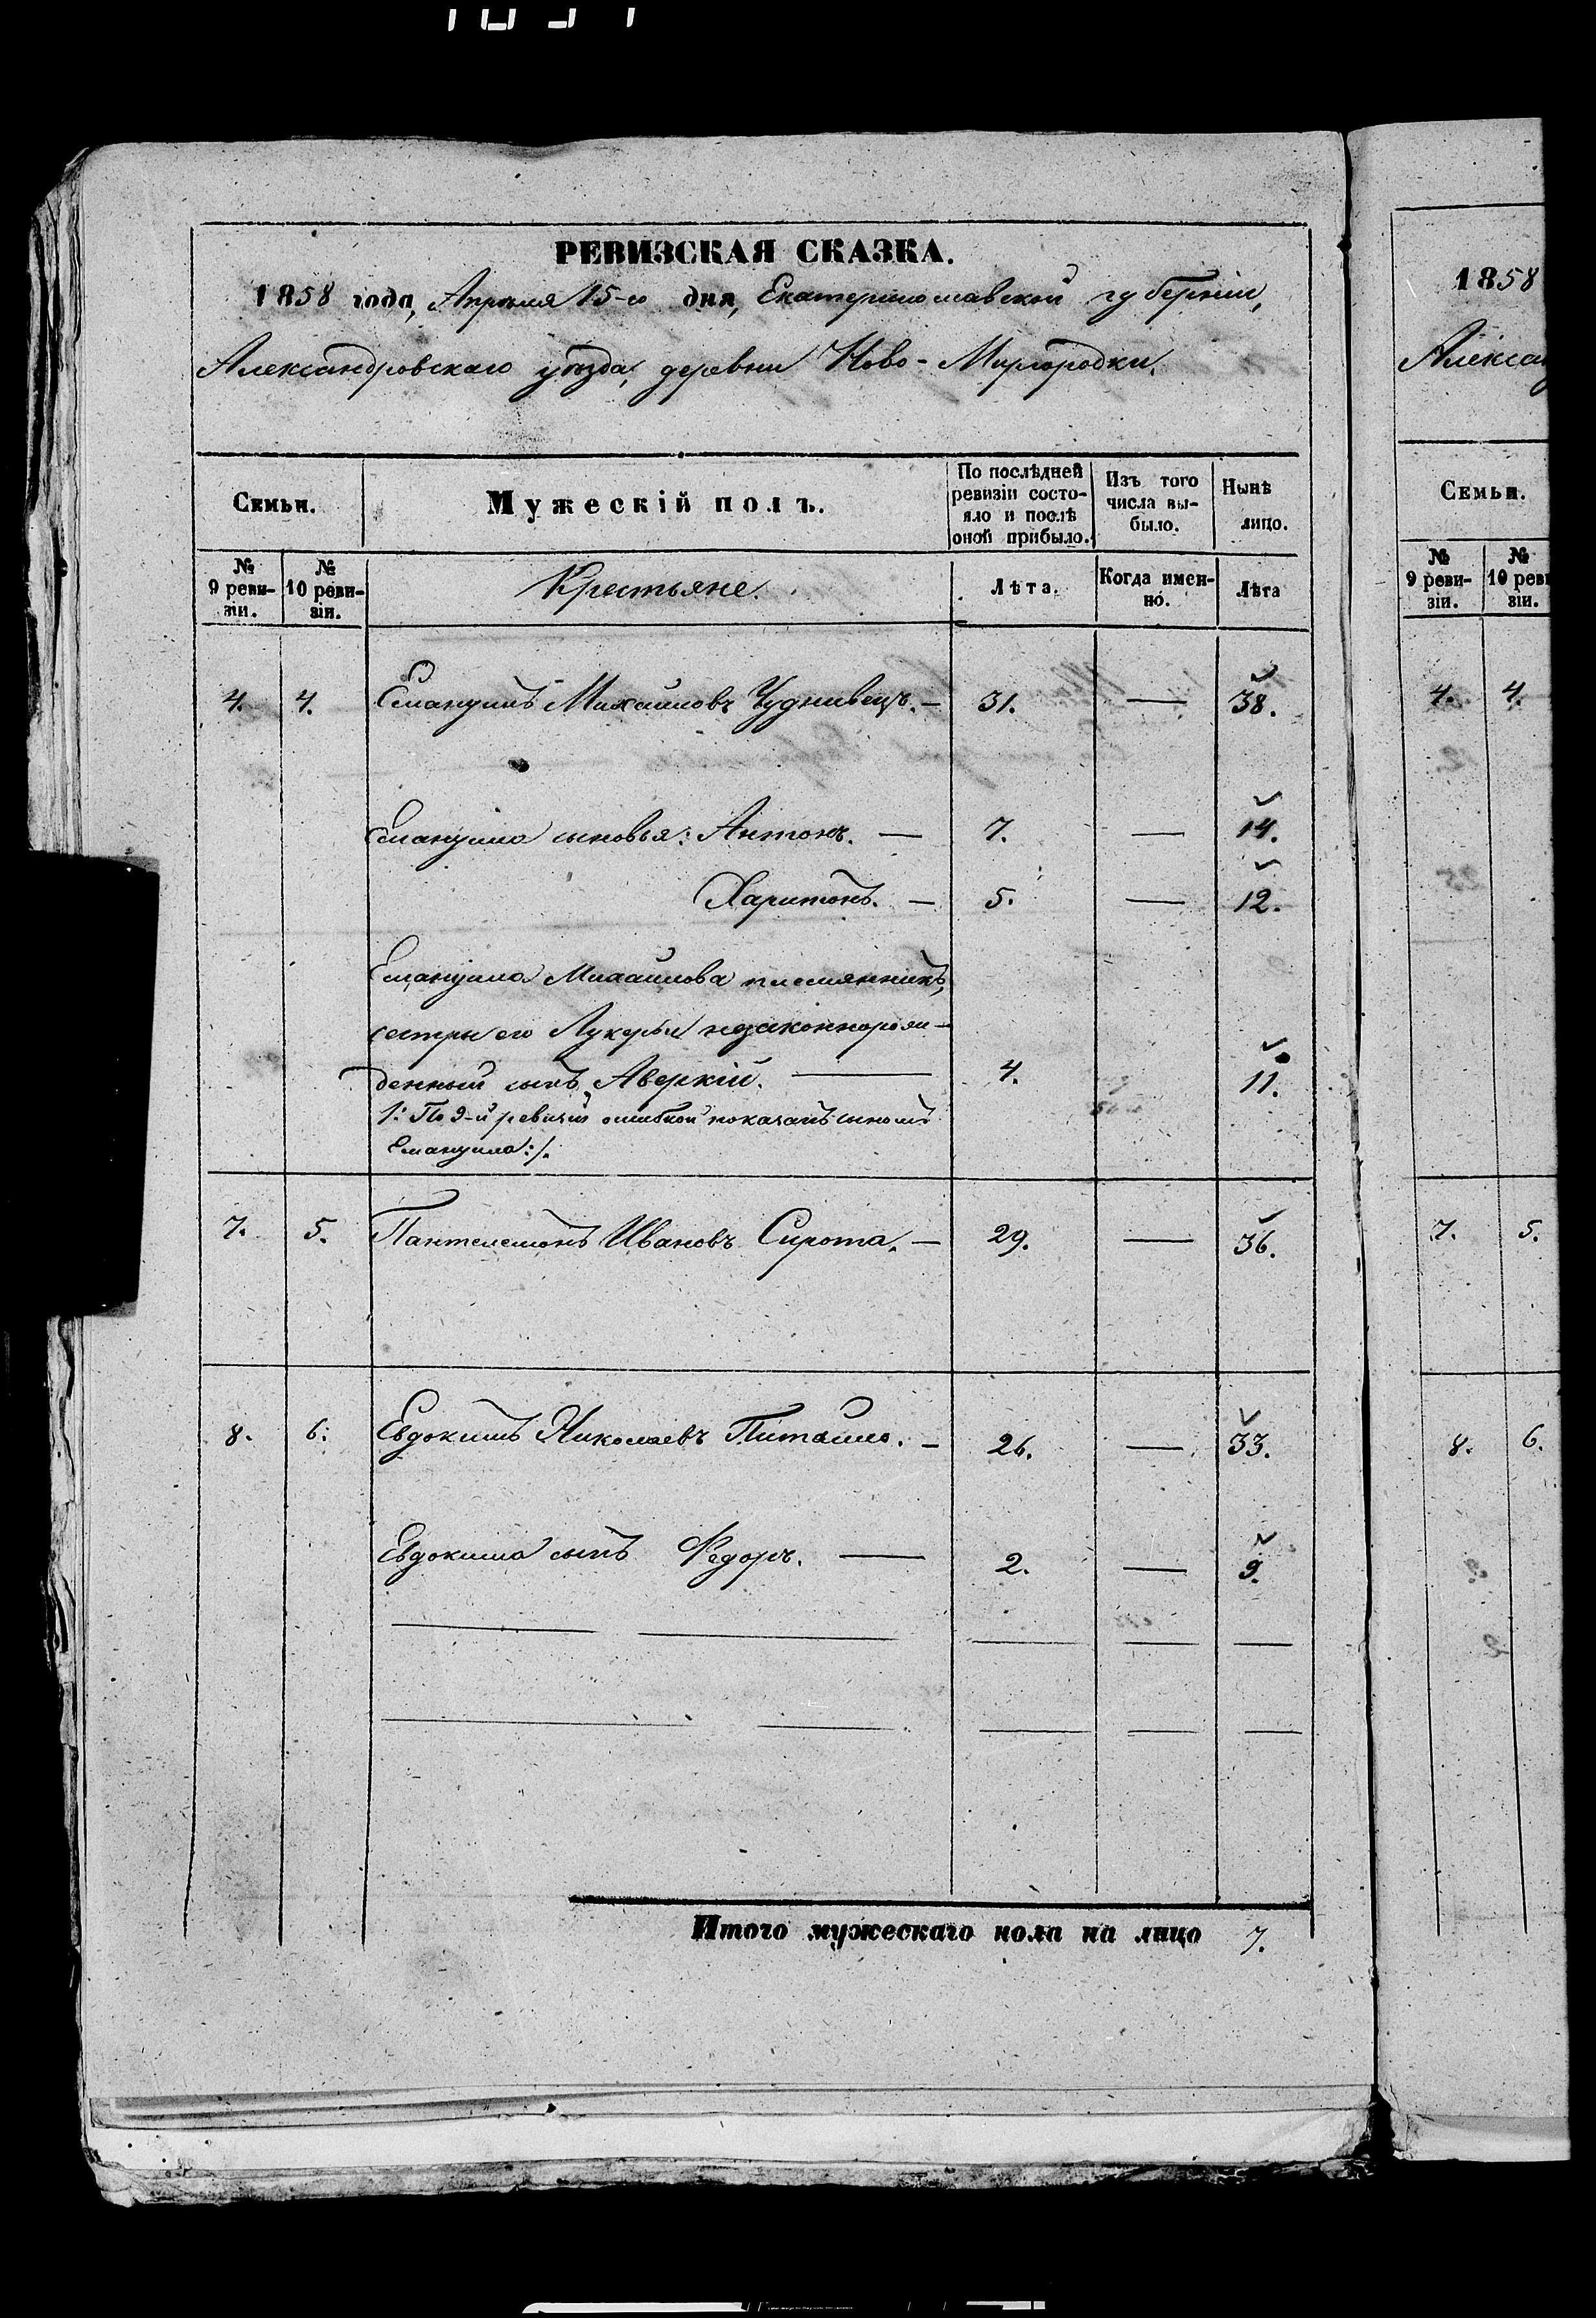 РЕВИЗСКАЯ СКАЗКА.
1858 года, Апреля 15-го дня, Екатеринославской губерніи,
Александровскаго уѣзда, деревни Ново-Миргородки.
Семьи.
Мужескій полъ.
По послѣдней ревизіи состояло и послѣ оной прибыло.
Изъ того числа выбыло.
Нынѣ лицо.
№ 9 ревизіи.
№ 10 ревизіи.
Крестьяне.
Лѣта.
Когда именно.
Лѣта
4. 4. Емануилъ Михайловъ Чуднивецъ. — 31. — 38.
Емануила сыновья: Антонъ. — 7. — 14.
Харитонъ. — 5. — 12.
Емануила Михайлова племянникъ,
сестры его Лукерьи незаконнорож-
денный сынъ Аверкій. — 4. 11.
/: По 9-й ревизіи ошибкой показанъ сыномъ
Емануила :/.
7. 5. Пантелемонъ Ивановъ Сирота. — 29. — 36.
8. 6. Евдокимъ Николаевъ — 26. — 33.
Евдокима сынъ Федоръ. — 2. — 9.
Итого мужескаго пола на лицо 7.
1858
Алекса
Семьи.
№ 9 ревизіи.
№ 10 реви
зіи.
4. 4.
7. 5.
8. 6.